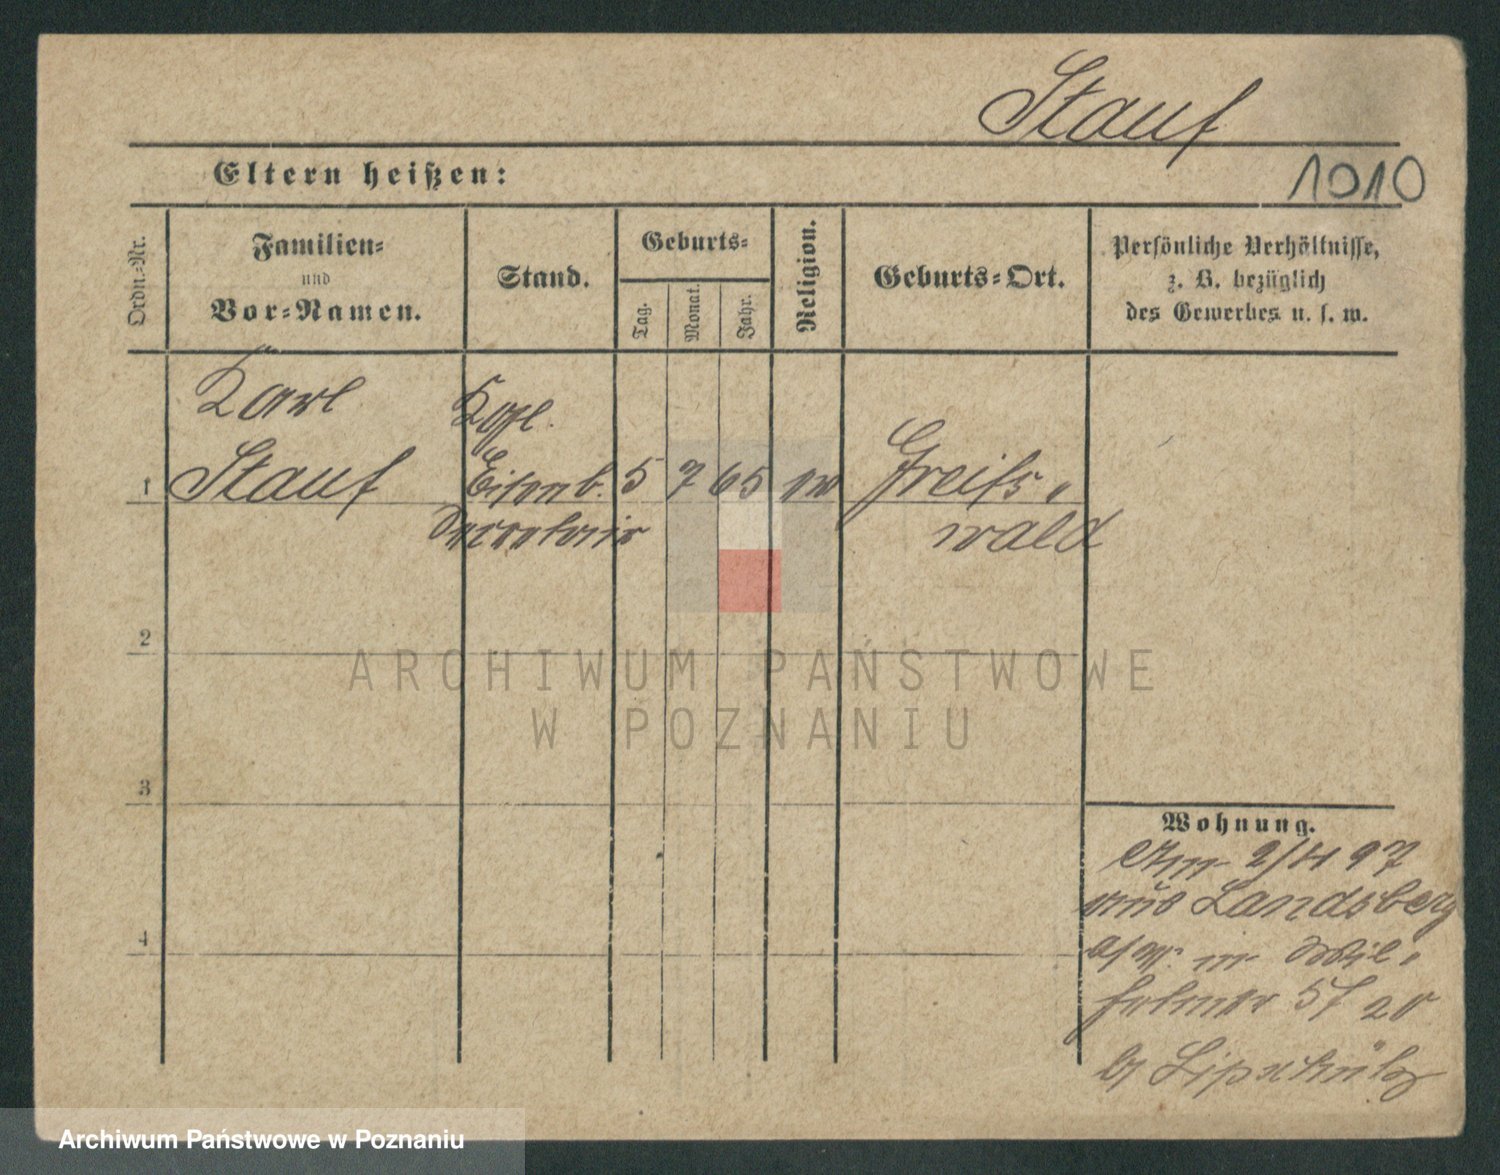 Stauf
Eltern heißen:
1010
Ordn.=Nr.
Familien=
und
Vor=Namen.
Stand.
Geburts=
Tag.
Monat.
Jahr.
Religion.
Geburts=Ort.
Persönliche Verhältnisse,
z. B. bezüglich
des Gewerbes u. s. w.
Karl
Kgl.
1 Stauf Eisenb. 5 7 65 ev Greifs„
Secretair wald
2
3
4
Wohnung.
2/4 97
aus Landsberg
a/W.
57
b/ Lipschütz
ARCHIWUM PAŃSTWOWE
W POZNANIU
Archiwum Państwowe w Poznaniu